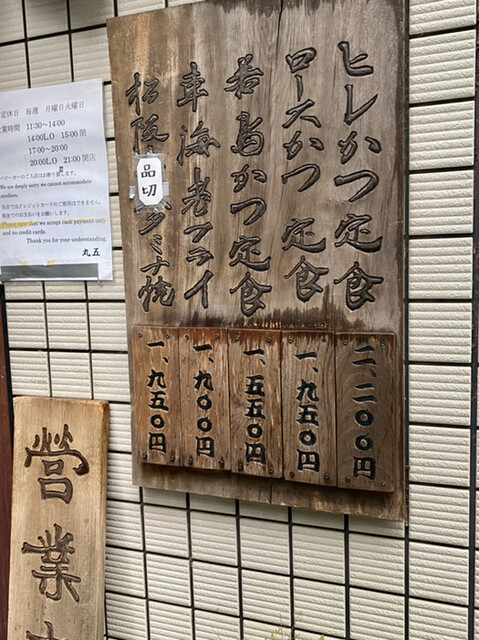 ヒレかつ定食
ロースかつ定食
若鶏かつ定食
車海老フライ
松阪
品切
ミンチ焼
二、二〇〇円
一、九五〇円
一、五五〇円
一、九〇〇円
一、九五〇円
定休日 毎週 月曜日火曜日
業時間 11:30~14:00
14:00L.O 15:00閉
17:00~20:00
20:00L.O 21:00閉店
ベビーカーのご入店はお断り致します。
We are deeply sorry we cannot accommodate
strollers.
当店ではクレジットカードのご使用はできません。
現金でのお支払いをお願いします。
Please note that we accept cash payment only
and no credit cards.
Thank you for your understanding.
丸五
営業